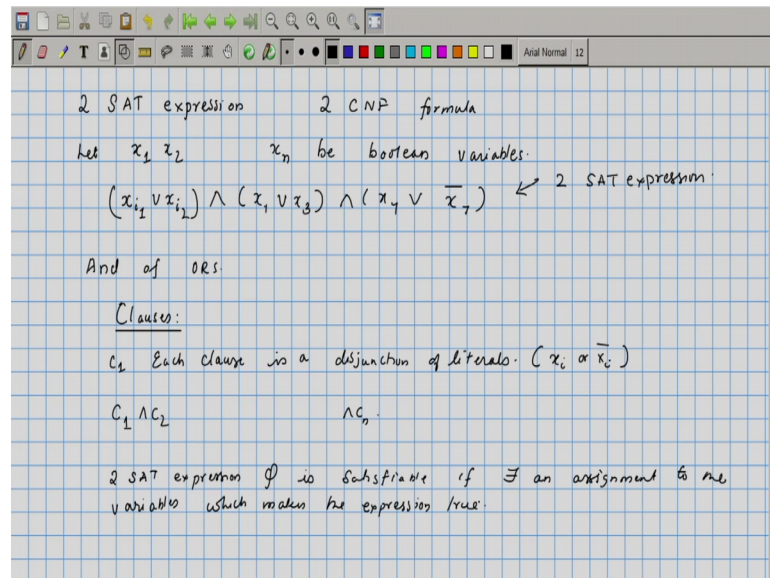 T
Arial Normal 12
2 SAT expression 2 CNF formula
Let x₁ x₂ xₙ be boolean variables.
(x_{i₁} ∨ x_{i₂}) ∧ (x₁ ∨ x₃) ∧ (x₄ ∨ x̅₇) ↙ 2 SAT expression.
And of ORS.
Clauses:
C₁ Each clause is a disjunction of literals. (xᵢ or x̅ᵢ)
C₁ ∧ C₂ ∧ Cₙ.
2 SAT expression φ is satisfiable if ∃ an assignment to the
variables which makes the expression true.